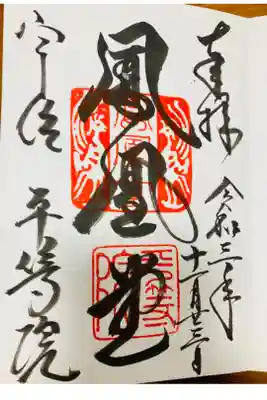 奉拝
令和三年
十一月廿三日
鳳凰堂
宇治
平等院